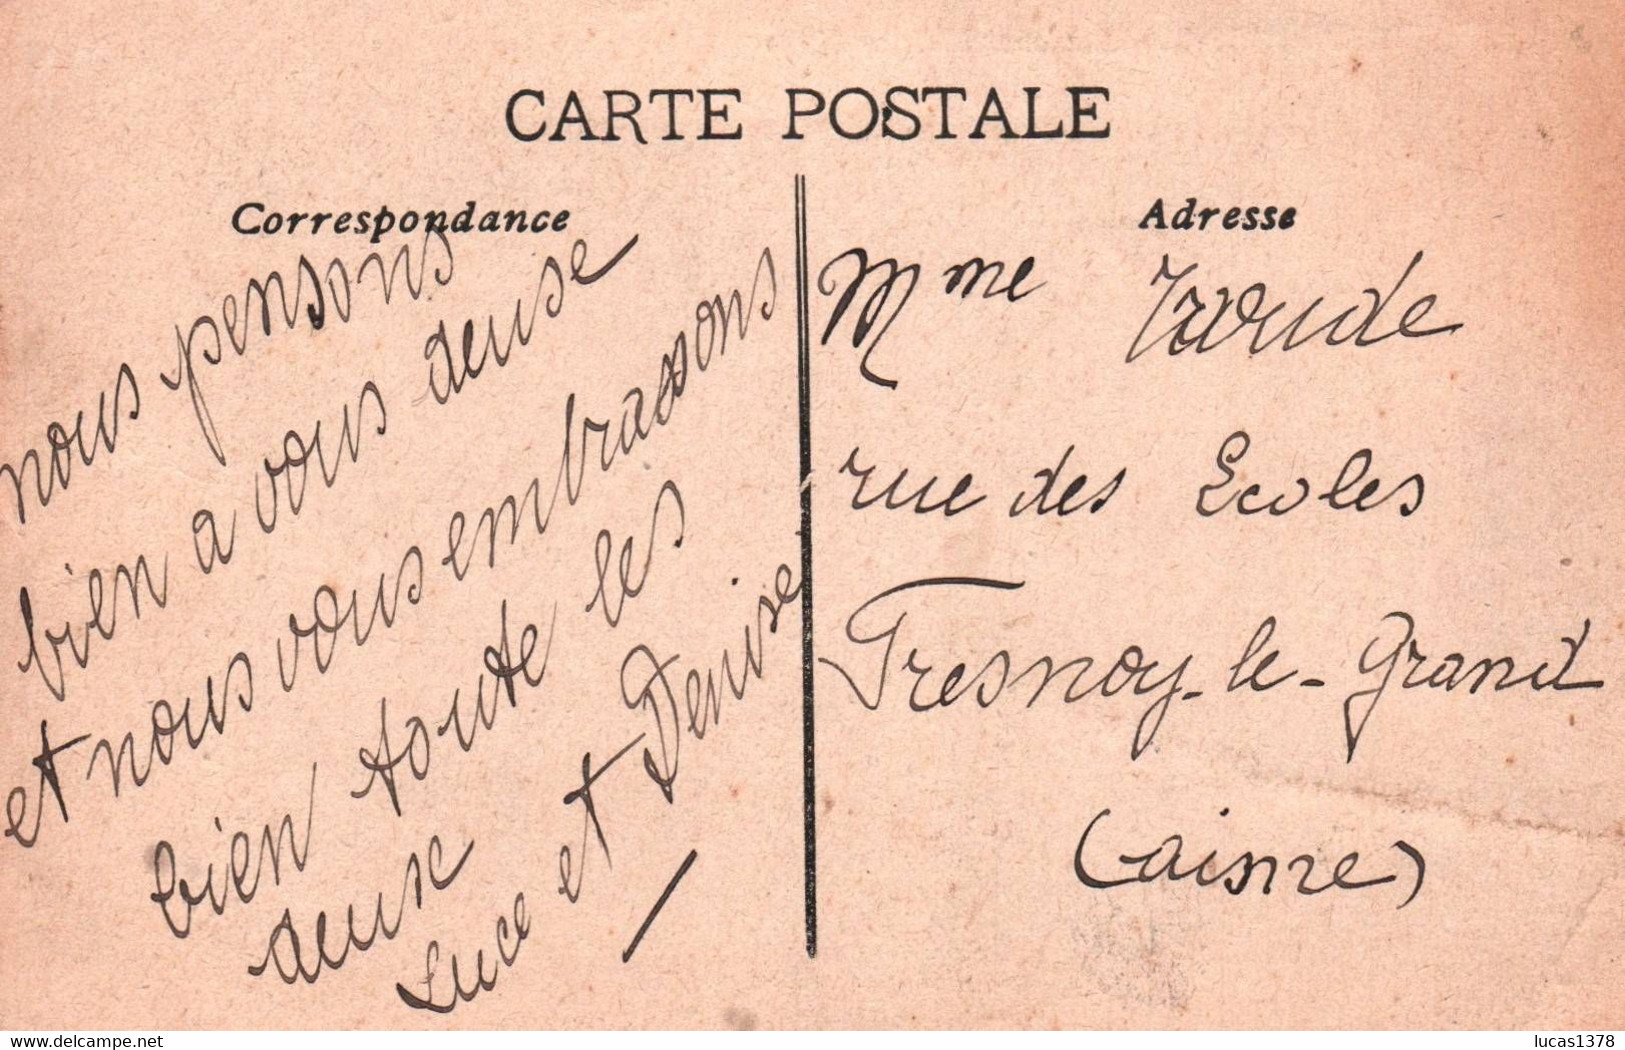 CARTE POSTALE
Correspondance
nous pensons
bien a vous deuse
et nous vous embrassons
bien toute les
deuse
Luce et Denise
Adresse
Mme
rue des Ecoles
Fresnoy-le-grand
(aisne)
delcampe.net
lucas1378